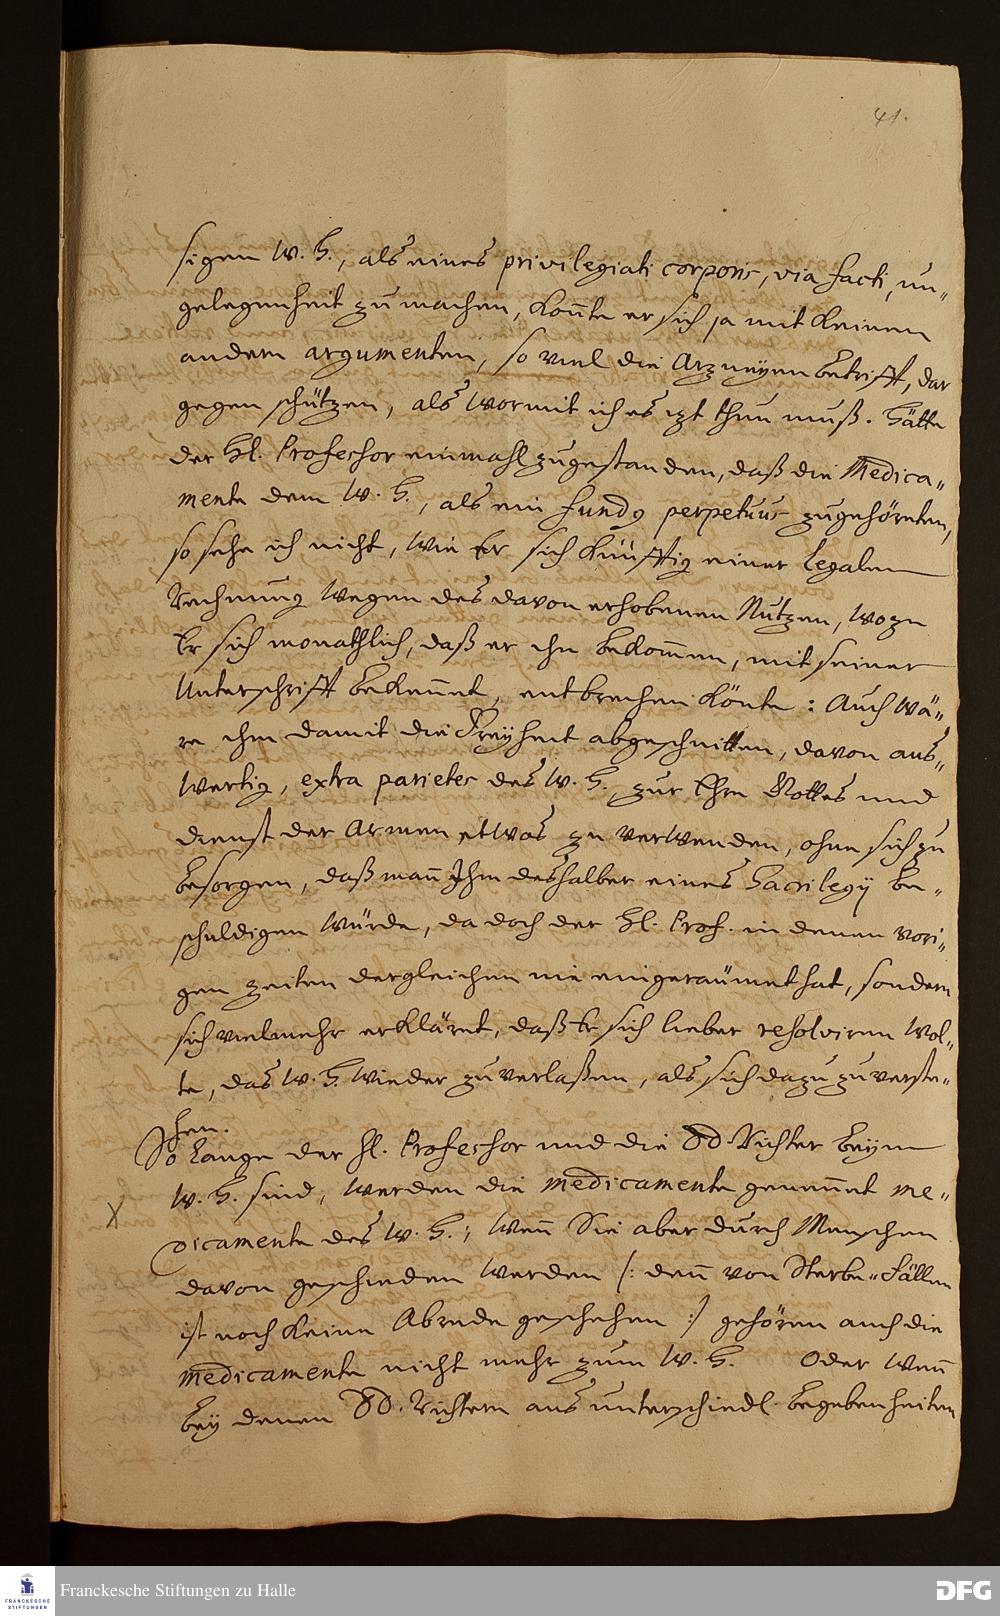 41.
sigen W. H., als eines privilegiati corporis, via facti, un„
gelegenheit zu machen, könte er sich ja mit keinen
andern argumenten, so viel die Artzneyen betrifft, dar
gegen schützen, als wormit ich es izt thun muß. Hätte
der Hl. Professor einmahl zugestanden, daß die Medica„
mente dem W. H., als ein fundg perpetuus zugehöreten,
so sehe ich nicht, wie Er sich künfftig einer legalen
Rechnung wegen des davon erhobenen Nutzen, wozu
Er sich monathlich, daß er ihn bekommen, mit seiner
Unterschrifft bekennet, entbrechen könte: Auch wä„
re ihm damit die Freyheit abgeschnitten, davon aus„
wertig, extra parietes des W. H. zur Ehre Gottes und
dienst der Armen etwas zu verwenden, ohne sich zu
besorgen, daß mann Ihm deshalber eines Sacrilegij be„
schuldigen würde, da doch der Hl. Prof. in denen vori„
gen zeiten dergleichen nie eingeräumet hat, sondern
sich vielmehr erkläret, daß Er sich lieber resolviren wol„
te, das W. H. wieder zu verlaßen, als sich dazu zu verste„
hen.
So lange der Hl. Professor und die DD. Richter beym
W. H. sind, werden die medicamente genennet me„
X
dicamente des W. H.; wenn Sie aber durch Menschen
davon geschieden werden (: denn von Sterbe„Fällen
ist noch keine Abrede geschehen :) gehören auch die
medicamente nicht mehr zum W. H. Oder wenn
bey denen DD. Richtern aus unterschiedl. begebenheiten
Franckesche Stiftungen zu Halle
FRANCKESCHE
STIFTUNGEN
DFG